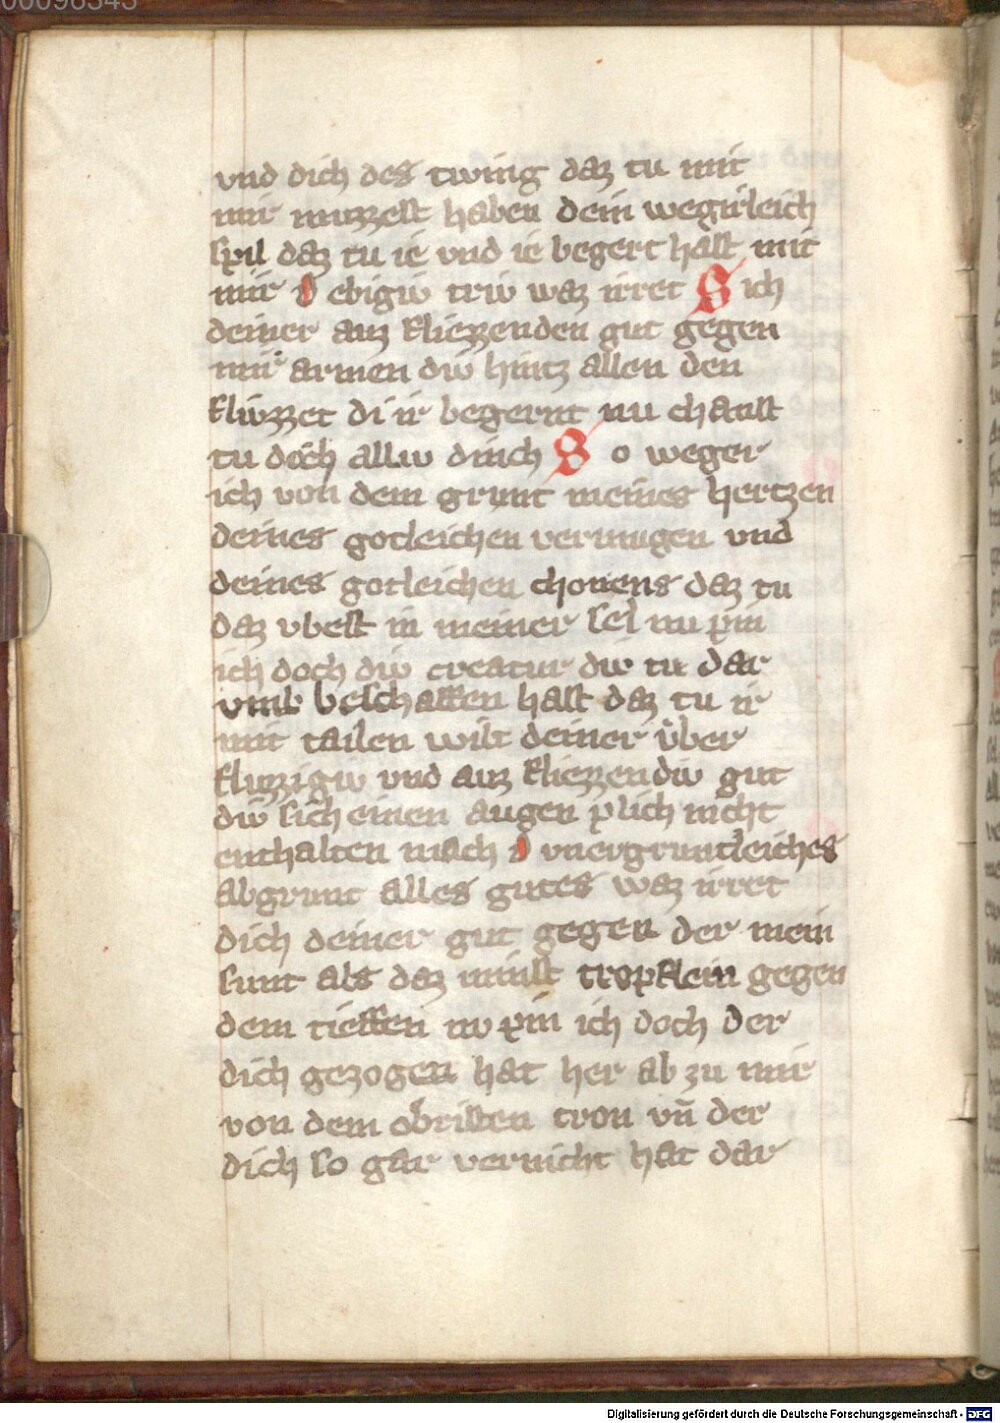 00096345
vnd dich des twing daz tu mit
mir muzzest haben dein wegirleich
spil daz tu ie vnd ie begert hast mit
mir O ebigiw triw waz irret Sich
deiner auz fliezzenden gut gegen
mir armen diw hintz allen den
fliwzzet di ir begernt nu chanst
tu doch alliw dinch So weger
ich von dem grunt meines hertzen
deines gotleichen vermugen vnd
deines gotleichen chonens daz tu
daz vbest in meiner sel nu pin
ich doch diw creatur diw tu dar
vmb beschaffen hast daz tu ir
mit tailen wilt deiner vber
fluzzigiw vnd auz fliezzendiw gut
diw sich einen augen plich nicht
enthalten mach O vnergruntleiches
abgrunt alles gutes waz irret
dich deiner gut gegen der mein
sunt als daz minst tropflein gegen
dem tieffen nv pin ich doch der
dich gezogen hat her ab zu mir
von dem obristen tron vn̄ der
dich so gar vernicht hat dar
Digitalisierung gefördert durch die Deutsche Forschungsgemeinschaft - DFG